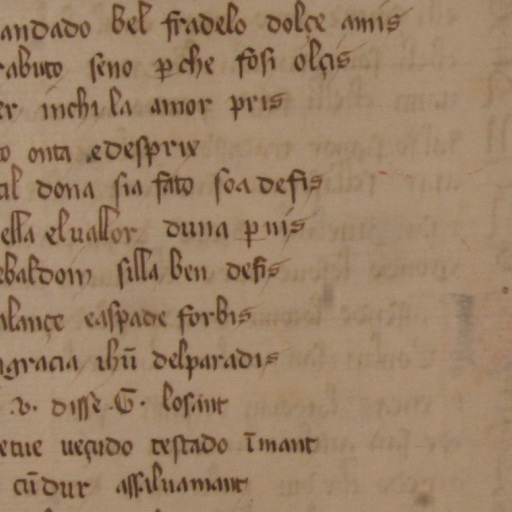 andado bel fradelo dolçe amis
rabuto seno ꝑche fosi olçis
er inchila amor pris
to onta edesprix
il dona sia fato soa defis
ella eluallor duna ꝑnis
ebaldoin silla ben defis
alançe easpade forbis
ngracia ihū delparadis
.v. disse .G. losant
etue veçudo testado īmant
cū dur assaluamant